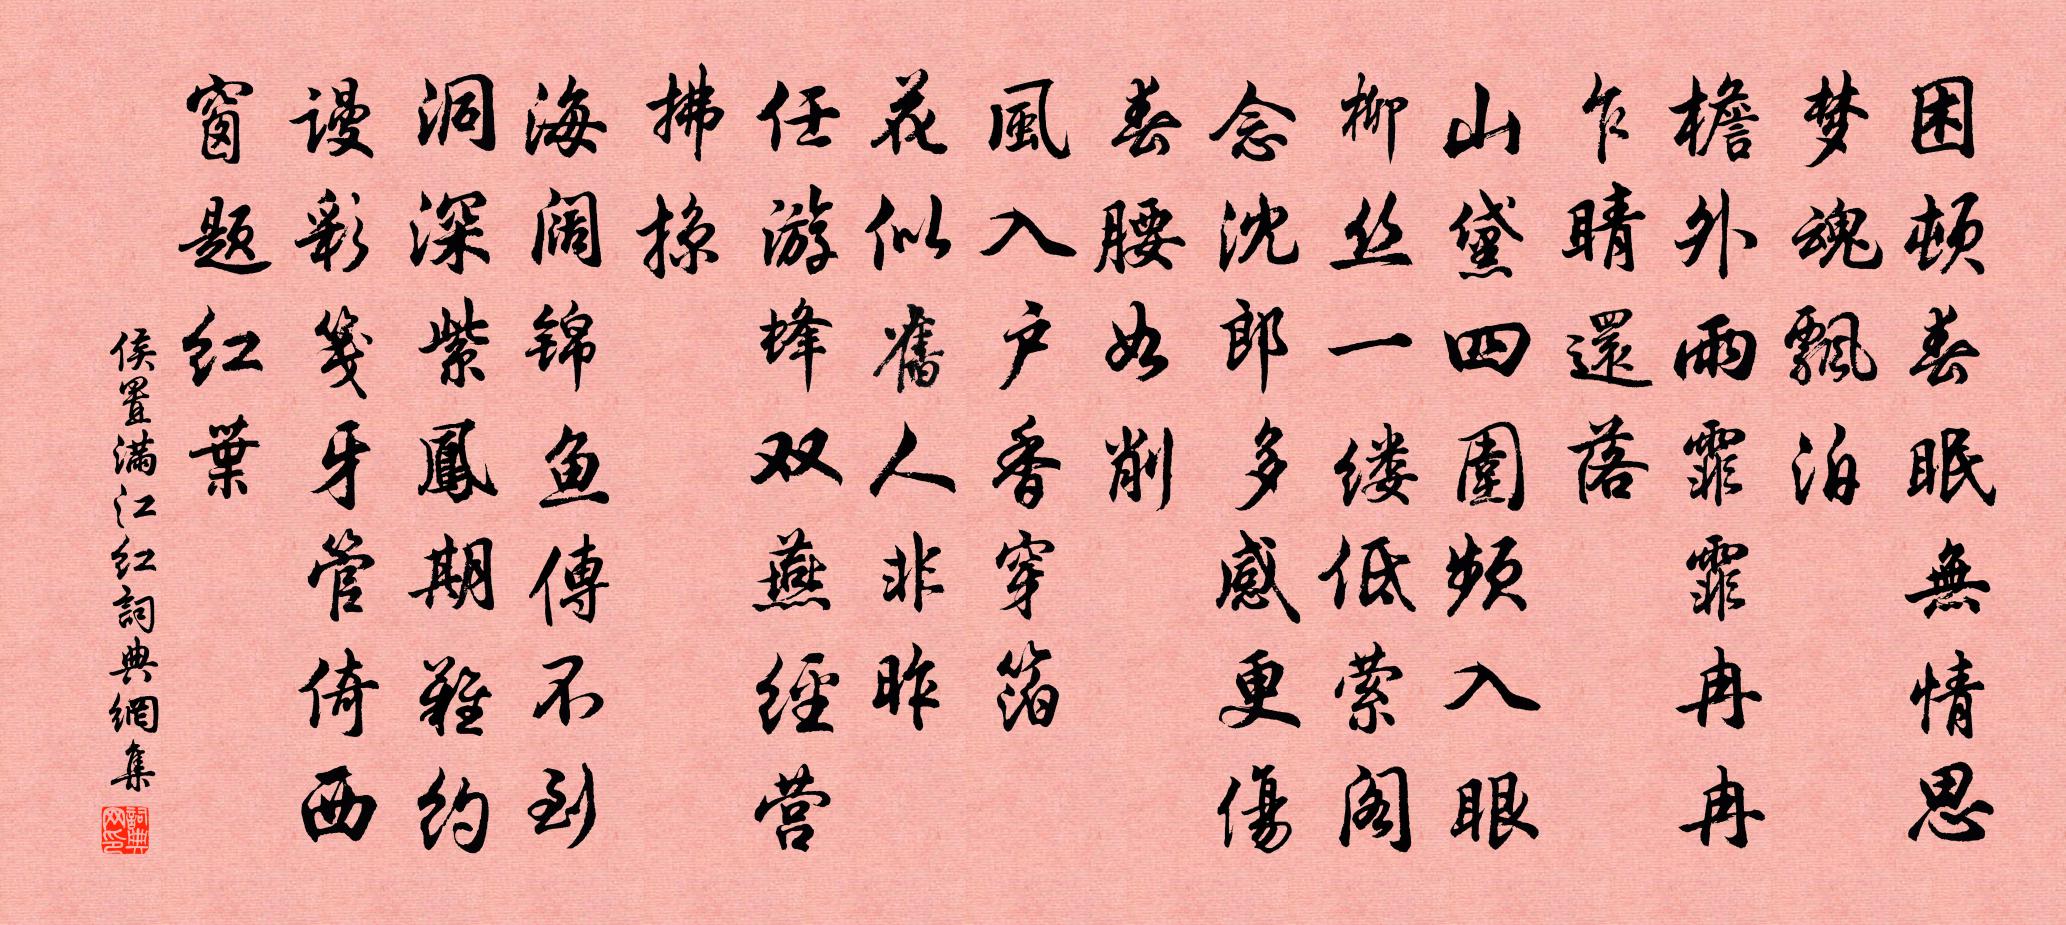 困顿春眠無情思
梦魂飄泊
檐外雨霏霏冉冉
乍晴還落
山黛四圍频入眼
柳丝一缕低萦阁
念沈郎多感更傷
春腰如削
風入户香穿箔
花似舊人非昨
任游蜂双燕经营
拂掠
海阔锦鱼傳不到
洞深紫鳳期難约
谩彩笺牙管倚西
窗题红葉
侯置满江红詞典網集
詞典网印